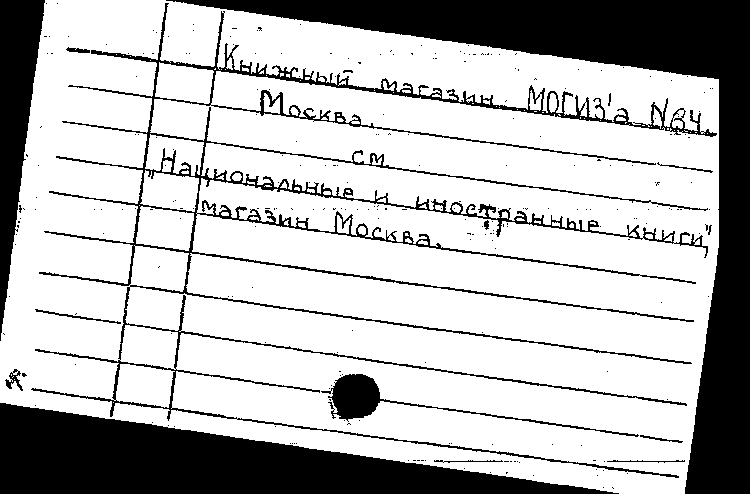 Книжный магазин МОГИЗ'а №84.
Москва.
см.
„Национальные и иностранные книги",
магазин Москва.